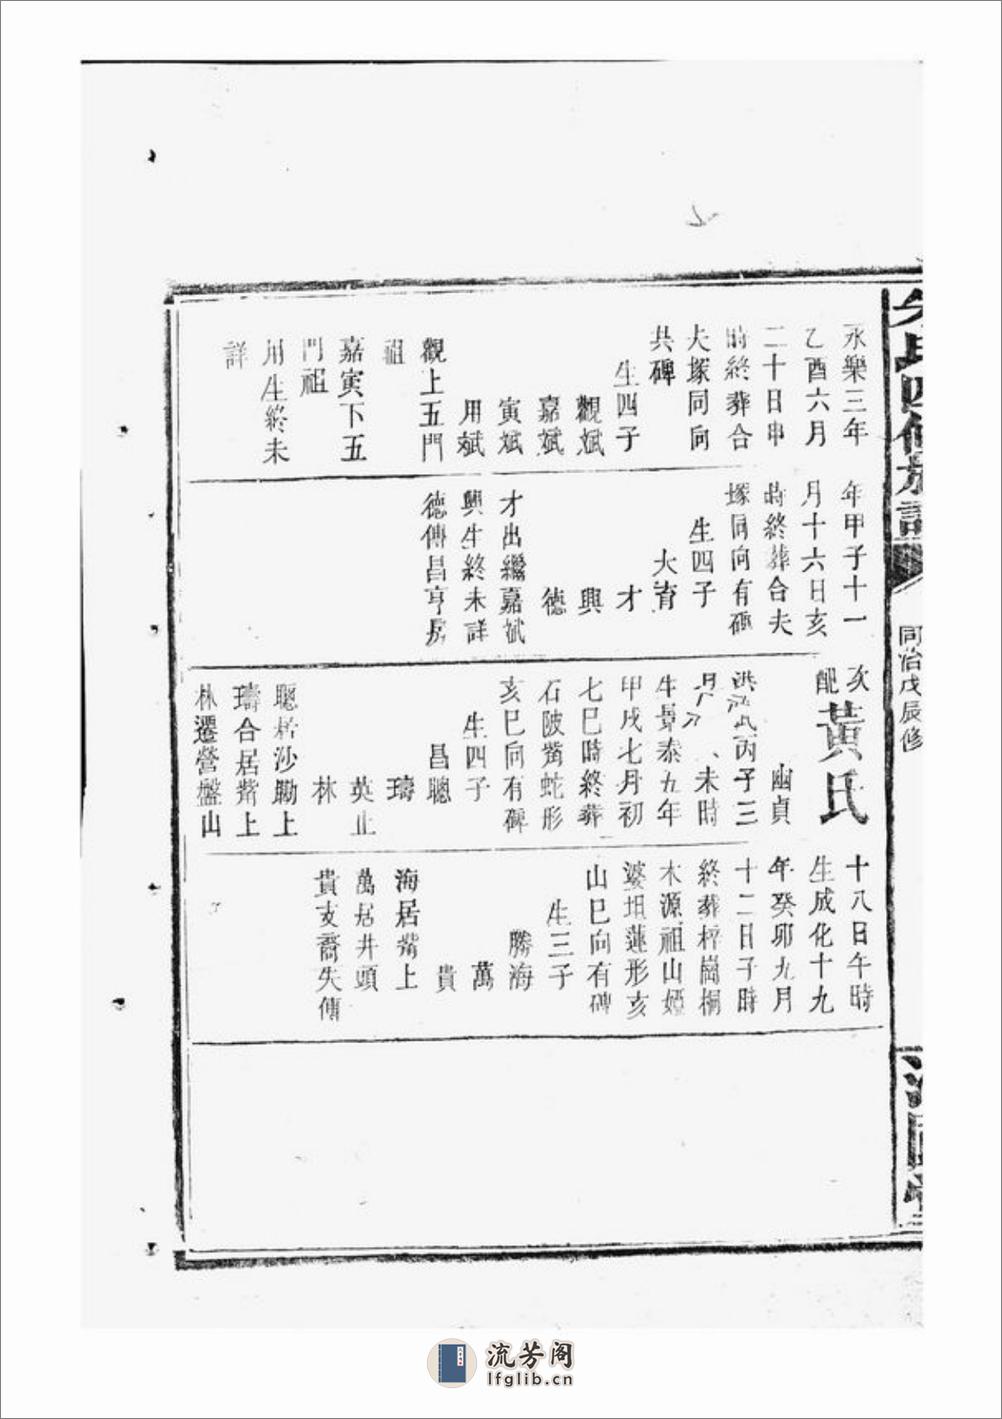 氏四修族譜
同治戊辰修
永樂三年
乙酉六月
二十日申
時終葬合
夫塚同向
共碑
生四子
觀斌
嘉斌
寅斌
用斌
觀上五門
祖
嘉寅下五
門祖
用生終未
詳
年甲子十一
月十六日亥
時終葬合夫
塚同向有碑
生四子
大育
才
興
德
才出繼嘉斌
興生終未詳
德傳昌亨房
次
配黃氏
幽貞
洪武丙子三
月 未時
生景泰五年
甲戌七月初
七巳時終葬
石陂觜蛇形
亥巳向有碑
生四子
昌聰
璹
英止
林
聰居沙勘上
璹合居觜上
林遷營盤山
十八日午時
生成化十九
年癸卯九月
十二日子時
終葬梓崗桐
木源祖山婭
婆坦蓮形亥
山巳向有碑
生三子
勝海
萬
貴
海居觜上
萬居井頭
貴支裔失傳
流芳阁
lfglib.cn